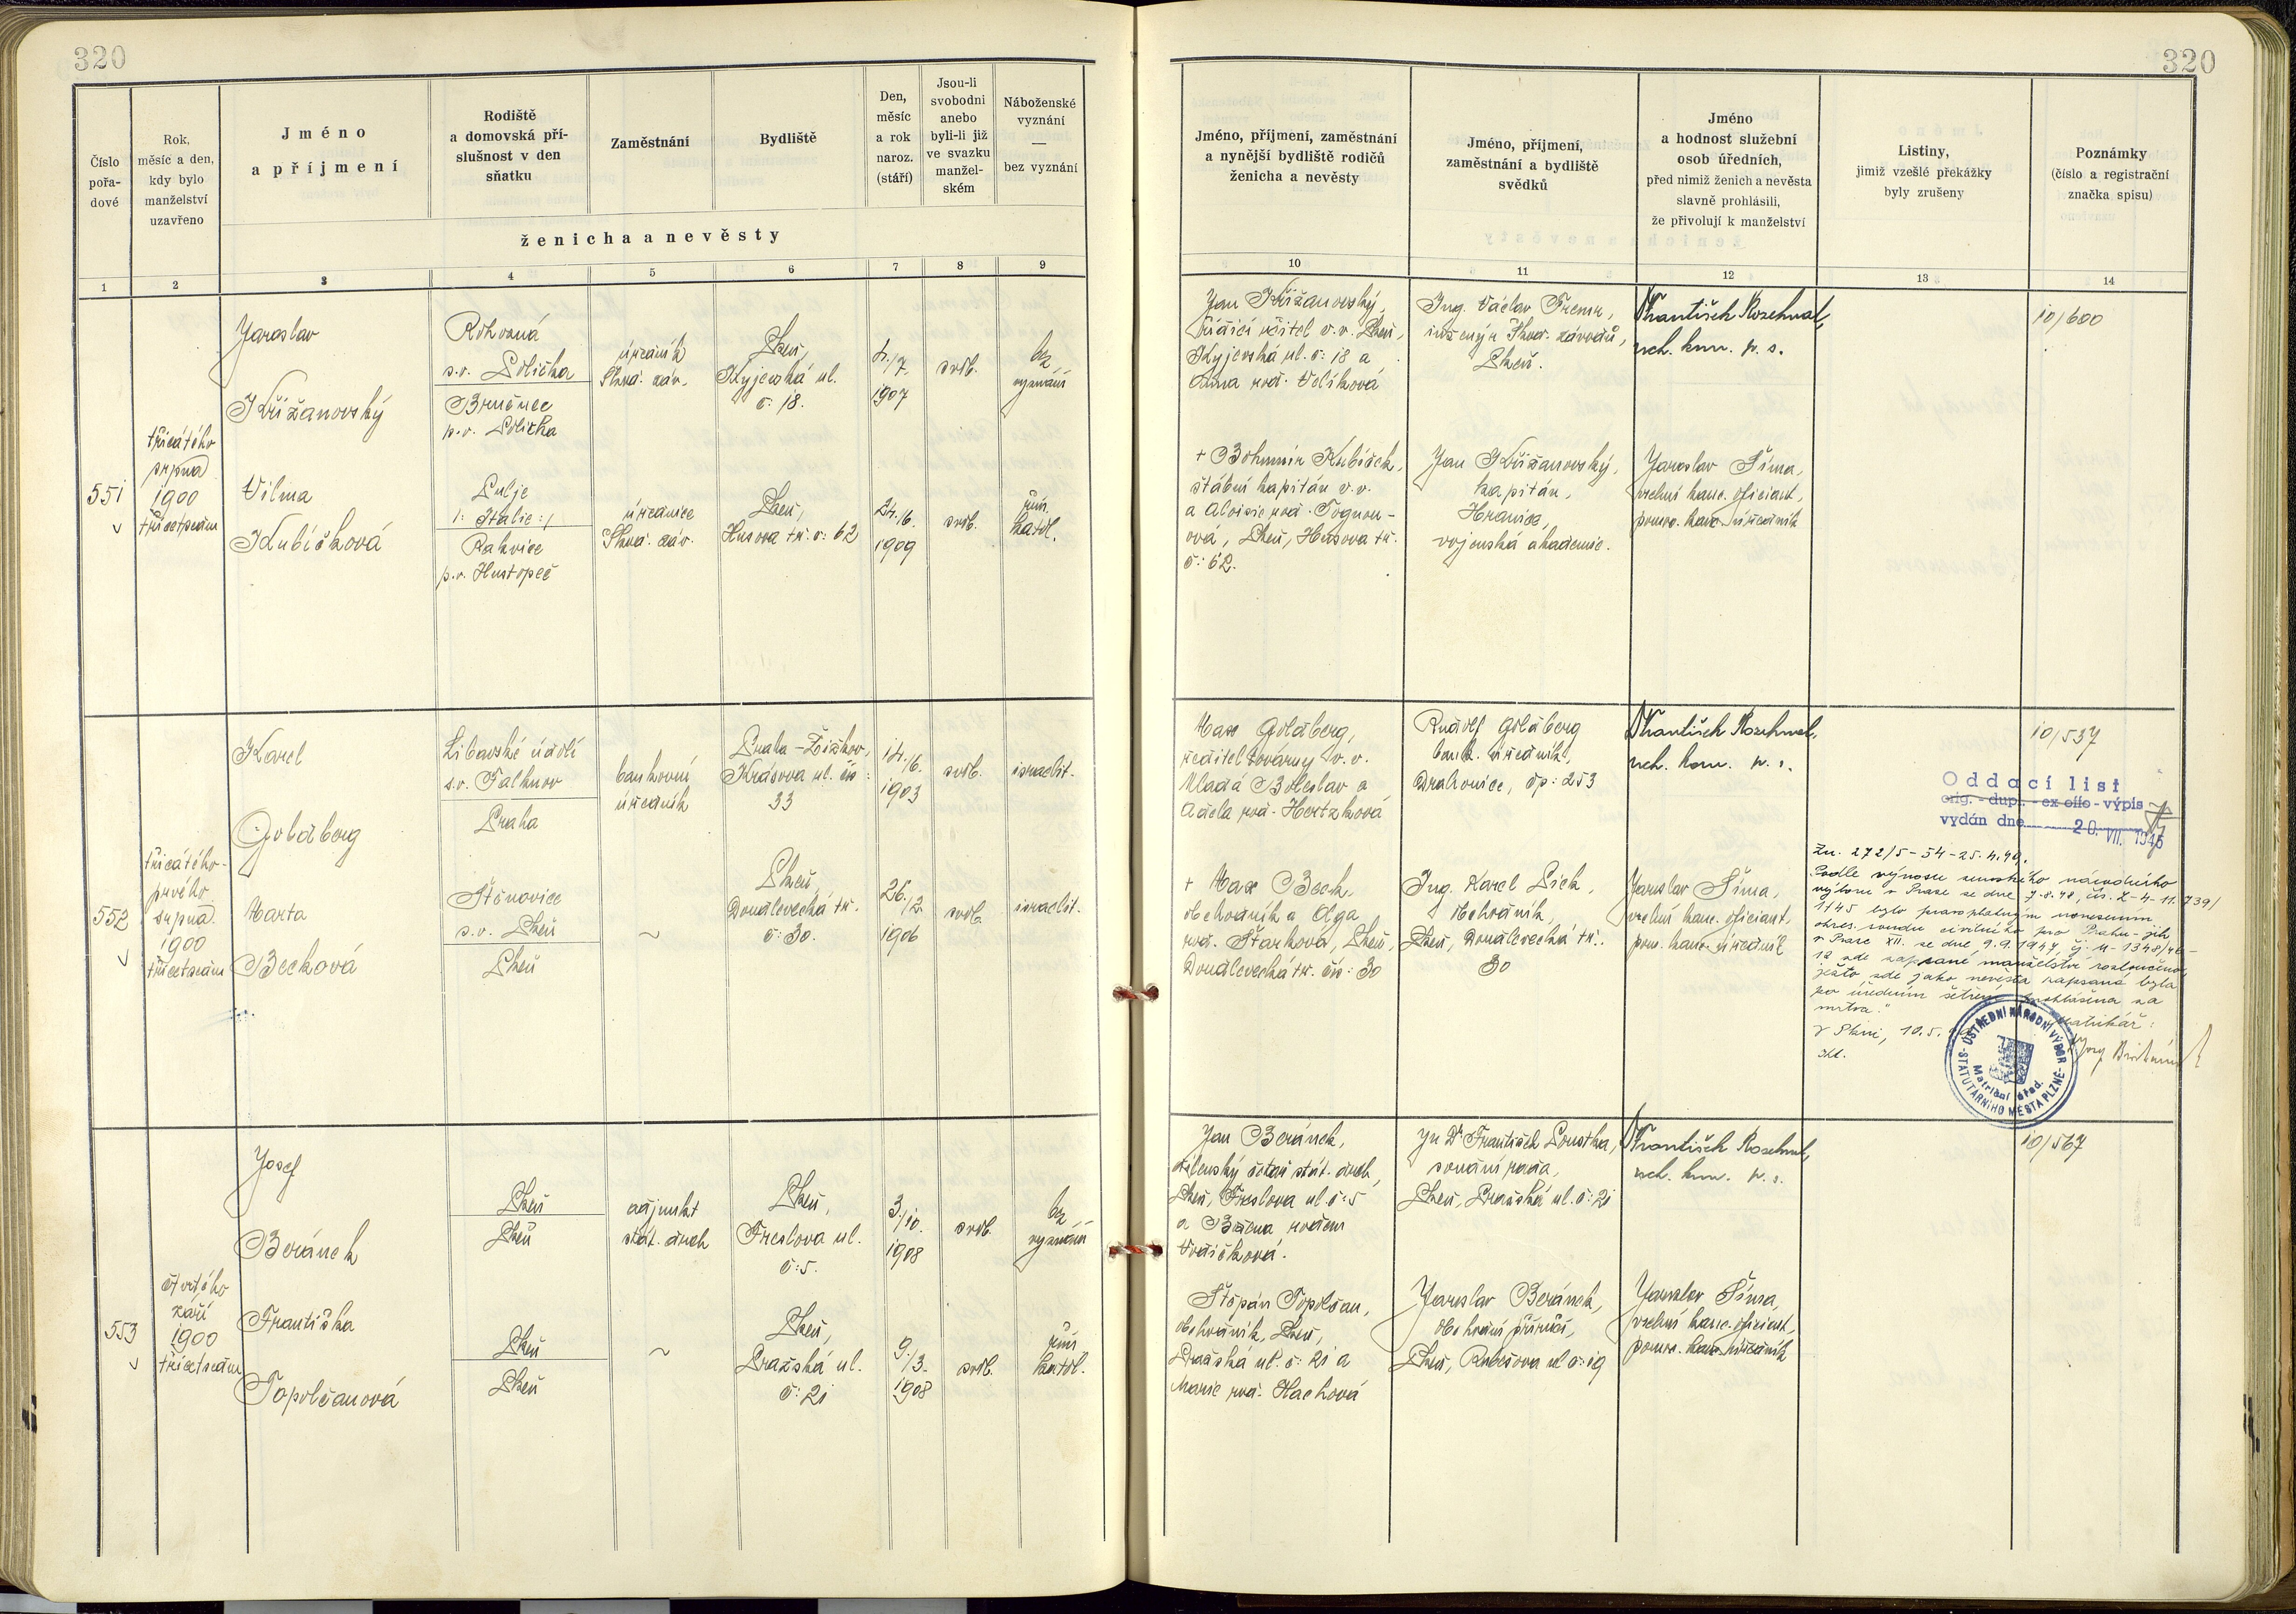 320
320
Číslo
pořa-
dové
Rok,
měsíc a den,
kdy bylo
manželství
uzavřeno
Jméno
a příjmení
Rodiště
a domovská pří-
slušnost v den
sňatku
Zaměstnání
Bydliště
Den,
měsíc
a rok
naroz.
(stáří)
Jsou-li
svobodni
anebo
byli-li již
ve svazku
manžel-
ském
Náboženské
vyznání
—
bez vyznání
ženicha a nevěsty
Jméno, příjmení, zaměstnání
a nynější bydliště rodičů
ženicha a nevěsty
Jméno, příjmení,
zaměstnání a bydliště
svědků
Jméno
a hodnost služební
osob úředních,
před nimiž ženich a nevěsta
slavně prohlásili,
že přivolují k manželství
Listiny,
jimiž vzešlé překážky
byly zrušeny
Poznámky
(číslo a registrační
značka spisu)
1 2 3 4 5 6 7 8 9
10 11 12 13 14
551
třicátého
srpna
1900
třicetsedm
Jaroslav
Křižanovský
Rohozná
s.o. Polička
p.o. Polička
úředník
Škod. záv.
Plzeň,
Kyjevská ul.
č: 18.
4./7.
1907
svob.
bez
vyznání
Vilma
Kubíčková
Pulje
/: Italie :/
Rakvice
p.o. Hustopeč
úřednice
Škod. záv.
Plzeň,
Husova tř. č: 62
24./6.
1909
svob.
řím.
katol.
Jan Křižanovský,
řídící učitel v.v. Plzeň,
Kyjevská ul. č: 18 a
Anna roz. Volíková
+ Bohumír Kubíček,
štábní kapitán v.v.
a Aloisie roz. Tognon-
ova, Plzeň, Husova tř.
č: 62.
Ing. Václav Fremr,
inženýr Škod. závodů,
Plzeň.
Jan Křižanovský,
kapitán,
Hranice,
vojenská akademie.
František Rozehnal,
rch. kom. p. s.
Jaroslav Šíma,
vrchní kanc. oficiant,
pomoc. kanc. úředník
10/600
552
třicátého-
prvého
srpna
1900
třicetsedm
Karel
Goldberg
Libavské údolí
s.o. Falknov
Praha
bankovní
úředník
Praha - Žižkov,
Krásova ul. čís:
33
14./6.
1903
svob.
israelit.
Marta
Becková
Štěnovice
s.o. Plzeň
Plzeň
~
Plzeň,
Doudlevecká tř.
č: 30.
26./2.
1906
svob.
israelit.
Max Goldberg,
ředitel továrny v.v.
Mladá Boleslav a
Adela roz. Hertzková
+ Max Beck,
obchodník a Olga
roz. Starková, Plzeň,
Doudlevecká tř. čís: 30
Rudolf Goldberg
bank. úředník,
Drahovice, čp: 253
Ing. Karel Pick,
obchodník,
Plzeň, Doudlevecká tř.
30
František Rozehnal,
rch. kom. p. s.
Jaroslav Šíma,
vrchní kanc. oficiant,
pom. kanc. úředník
10/537
Oddací list
orig. - dupl. - ex offo - výpis
vydán dne 20. VII. 1946
Zn. 272/5-54-25.4.49.
"Podle výnosu zemského národního
výboru v Praze ze dne 7.8.48, čís. Z-4-11.739/
1145 bylo pravoplatným usnesením
okres. soudu civilního pro Prahu-jih
v Praze XII. ze dne 9.9.1947, čj. 4-1348/46-
12 zde zapsané manželství rozloučeno,
ježto zde jako nevěsta zapsaná byla
po úředním šetření prohlášena za
mrtvou."
V Plzni, 10.5.
matrikář:
ÚSTŘEDNÍ NÁRODNÍ VÝBOR
STATUTÁRNÍHO MĚSTA PLZNĚ
Matriční úřad.
553
čtvrtého
září
1900
třicetsedm
Josef
Beránek
Plzeň
Plzeň
adjunkt
stát. drah
Plzeň,
Preslova ul.
č: 5.
3./10.
1908
svob.
bez
vyznání
Františka
Topolčanová
Plzeň
Plzeň
~
Plzeň,
Pražská ul.
č: 21
9./3.
1908
svob.
řím.
katol.
Jan Beránek,
dílenský čétař stát. drah,
Plzeň, Preslova ul. č: 5
a Božena rozená
Vodičková.
Štěpán Topolčan,
obchodník, Plzeň,
Pražská ul. č: 21 a
Marie roz. Hachová
Ju Dr František Loustka,
soudní rada,
Plzeň, Pražská ul. č: 21
Jaroslav Beránek,
obchodní příručí,
Plzeň, Rubešova ul. č: 19
František Rozehnal,
rch. kom. p. s.
Jaroslav Šíma,
vrchní kanc. oficiant,
pomoc. kanc. úředník
10/567